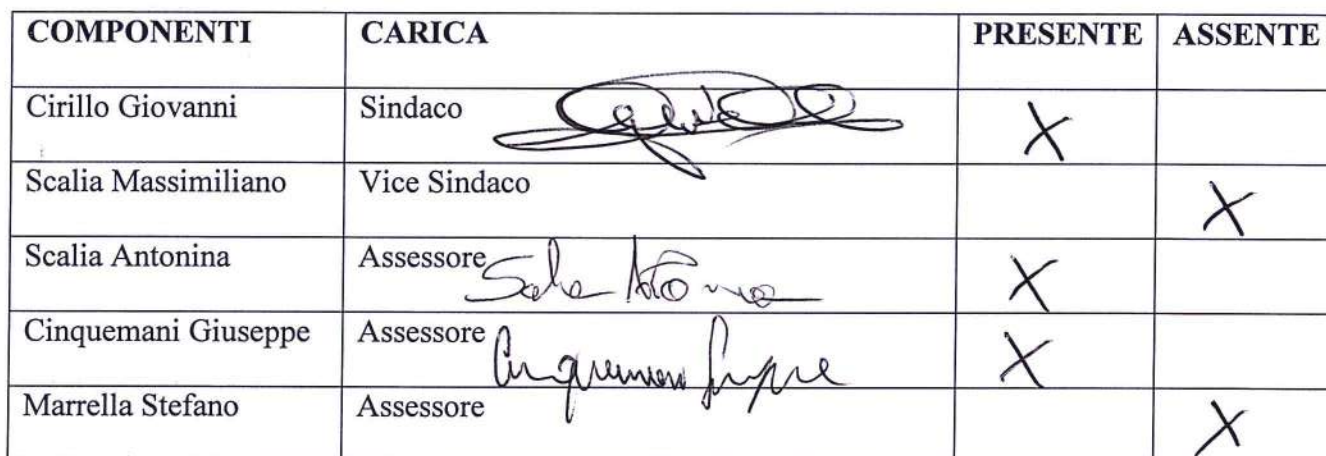 COMPONENTI CARICA PRESENTE ASSENTE
Cirillo Giovanni Sindaco X
Scalia Massimiliano Vice Sindaco X
Scalia Antonina Assessore X
Cinquemani Giuseppe Assessore Cinquemani Giuseppe X
Marrella Stefano Assessore X